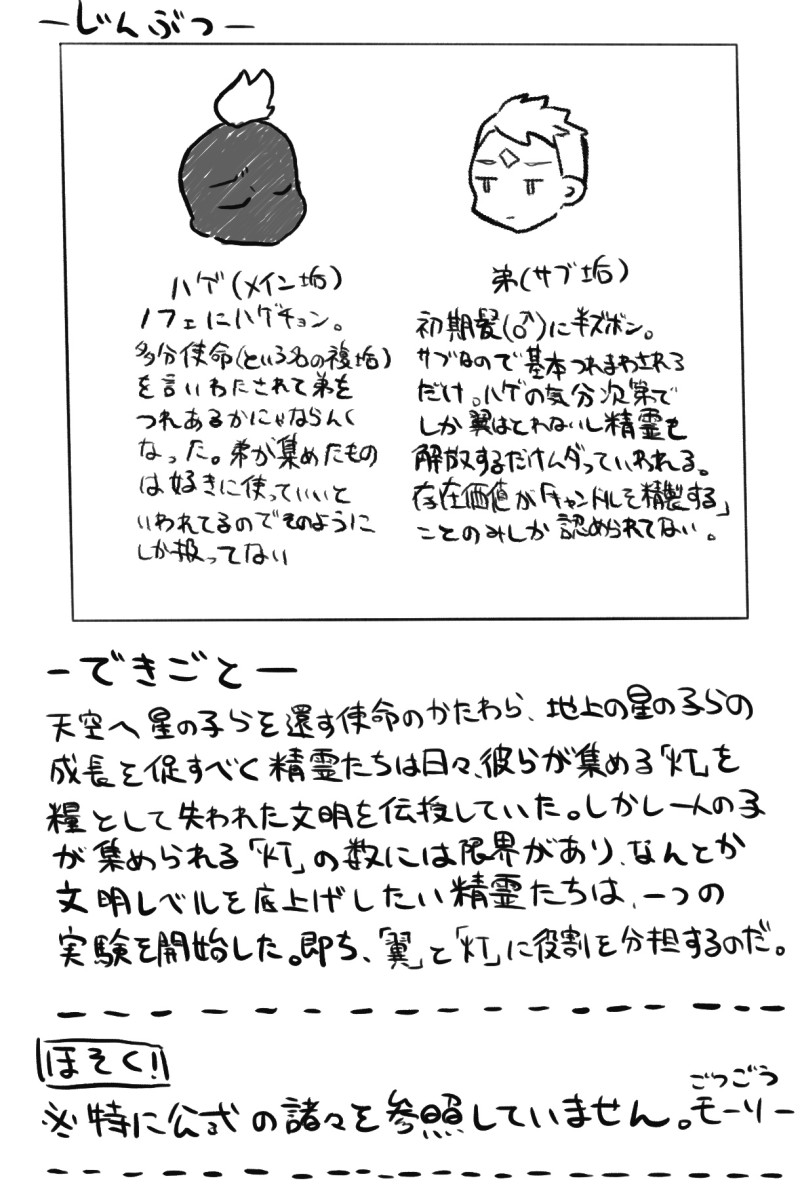 ーじんぶつー
ハゲ(メイン垢)
ノフェにハゲチョン。
多分使命(という名の複垢)
を言いわたされて弟を
つれあるかにゃならんく
なった。弟が集めたもの
は好きに使っていいと
いわれてるのでそのように
しか扱ってない
弟(サブ垢)
初期髪(♂)に半ズボン。
サブなので基本つれまわされる
だけ。ハゲの気分次第で
しか翼はとれないし精霊も
解放するだけムダっていわれる。
存在価値が「キャンドルを精製する」
ことのみしか認められてない。
ーできごとー
天空へ星の子らを還す使命のかたわら、地上の星の子らの
成長を促すべく精霊たちは日々、彼らが集める「灯」を
糧として失われた文明を伝授していた。しかし一人の子
が集められる「灯」の数には限界があり、なんとか
文明レベルを底上げしたい精霊たちは、一つの
実験を開始した。即ち、「翼」と「灯」に役割を分担するのだ。
ほそく!
ごつごう
※特に公式の諸々を参照していません。モーソー